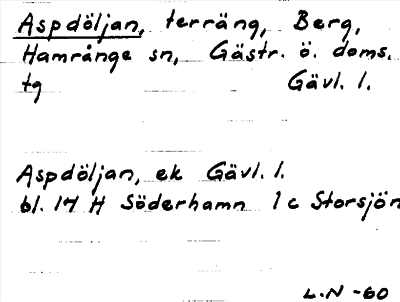 Aspdöljan, terräng, Berg,
Hamrånge sn, Gästr. ö. doms.
tg Gävl. l.
Aspdöljan, ek Gävl. l.
bl. 17 H Söderhamn 1 c Storsjön
L.N -60